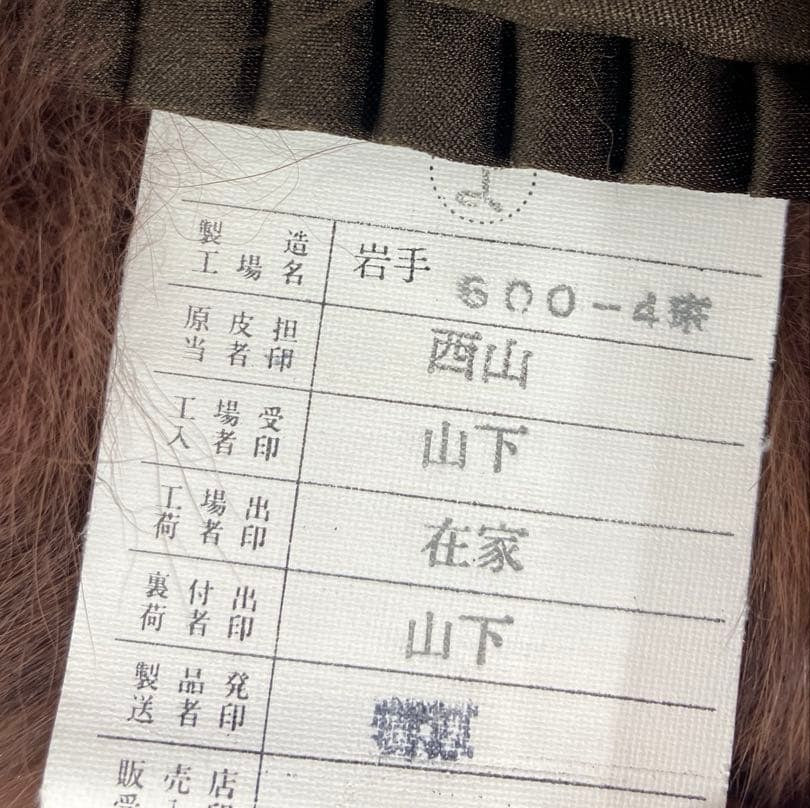 製造工場名 岩手 600-4
原皮担当者印 西山
工場受入者印 山下
工場出荷者印 在家
裏付出荷者印 山下
製品発送者印
販売店